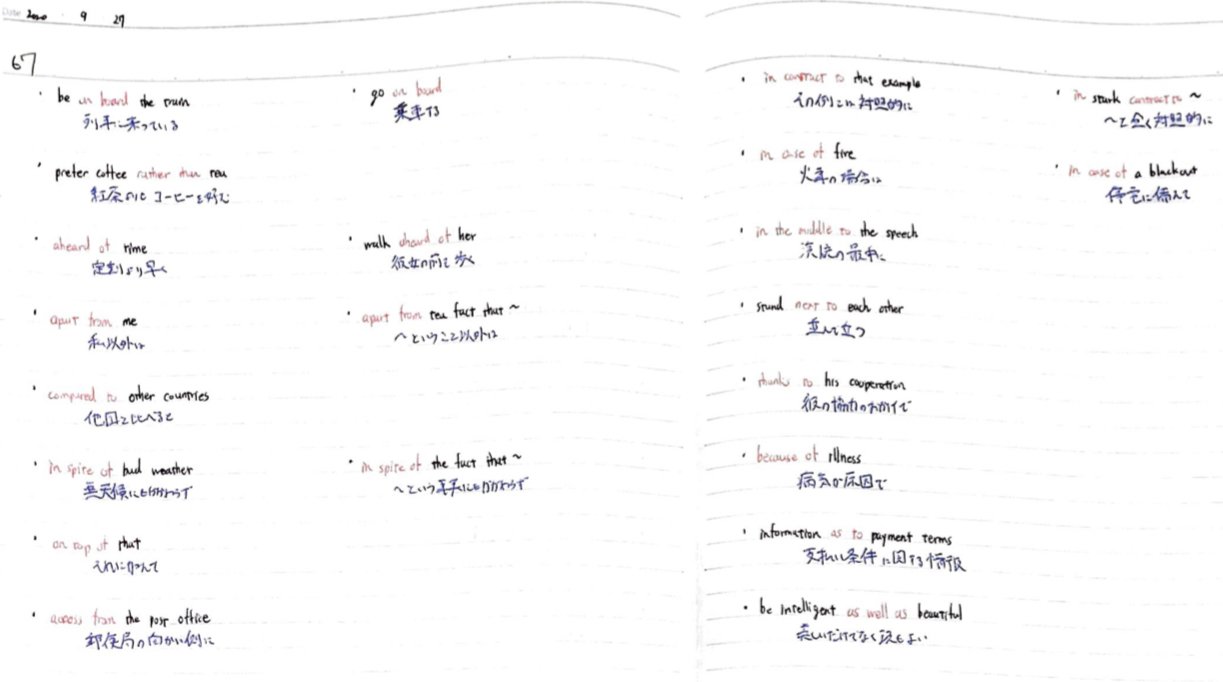 Date 2020 ・ 9 ・ 27
67
・ be on board the train
列車に乗っている
・ prefer coffee rather than tea
紅茶よりもコーヒーを好む
・ aheard of time
定刻より早く
・ apart from me
私以外は
・ compared to other countries
他国と比べると
・ in spite of bad weather
悪天候にもかかわらず
・ on top of that
それに加えて
・ across from the post office
郵便局の向かい側に
・ go on board
乗車する
・ walk aheard of her
彼女の前を歩く
・ apart from tea fact that ～
～ということ以外は
・ in spite of the fact that ～
～という事実にもかかわらず
・ in contract to that example
その例とは対照的に
・ in case of fire
火事の場合は
・ in the middle to the speech
演説の最中に
・ stand next to each other
並んで立つ
・ thanks to his couperation
彼の協力のおかげで
・ because of illness
病気が原因で
・ information as to payment terms
支払い条件に関する情報
・ be intelligent as well as beautiful
美しいだけでなく頭もよい
・ in stark contract to ～
～と全く対照的に
・ in case of a blackout
停電に備えて